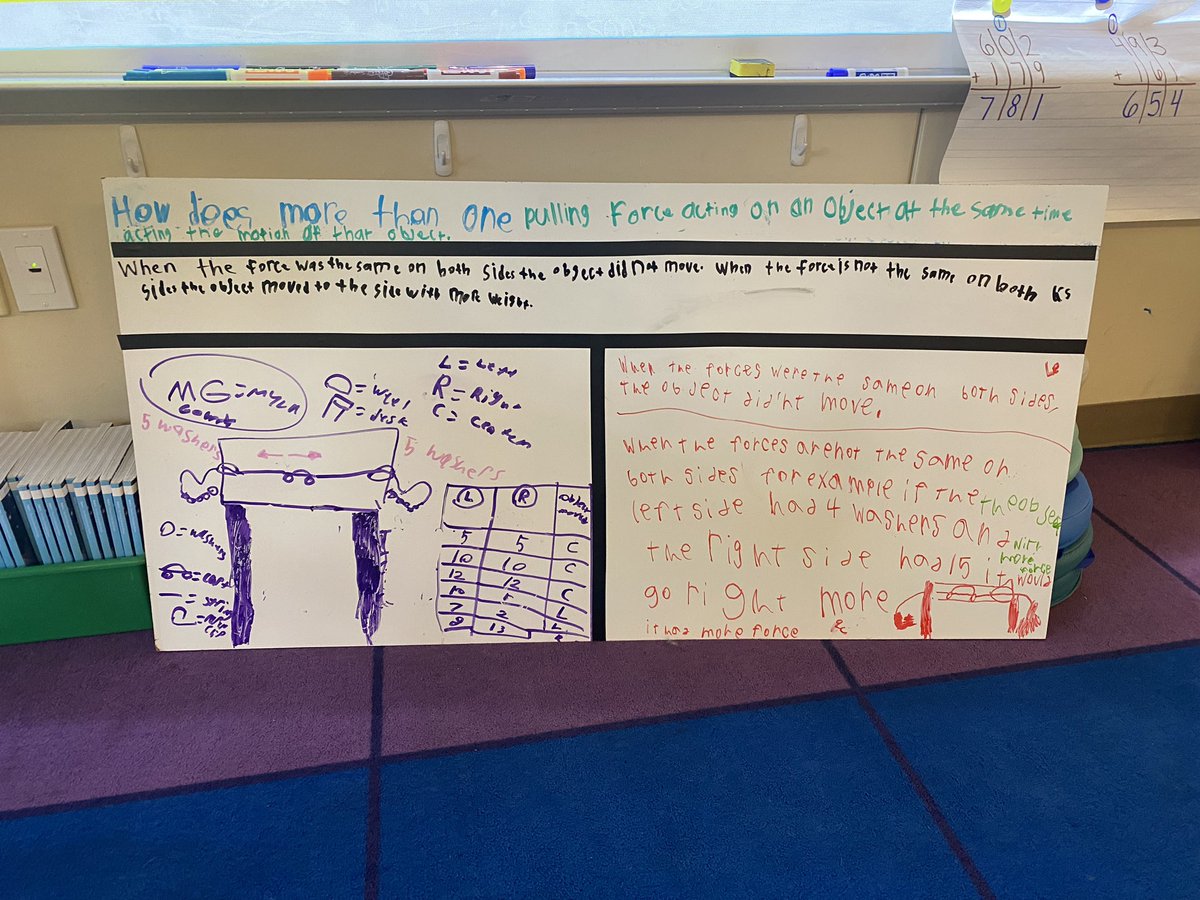 602
+179
781
493
+161
654
How does more than one pulling Force acting on an Object at the same time
acting the motion of that object.
When the force was the same on both sides the object did not move. When the force is not the same on both Ks
sides the object moved to the side with more weight.
MG=
L=
R=Right
C=
=desk
5 washers
5 washers
L R object moves
5 5 C
10 10 C
12 12 C
10 1 L
7 2 L
8 13 R
O=washers
When the forces were the same on both sides,
the object didn't move.
When the forces are not the same on
both sides for example if the the object
left side had 4 washers and with
the right side had 15 it would more force
go right more
it had more force